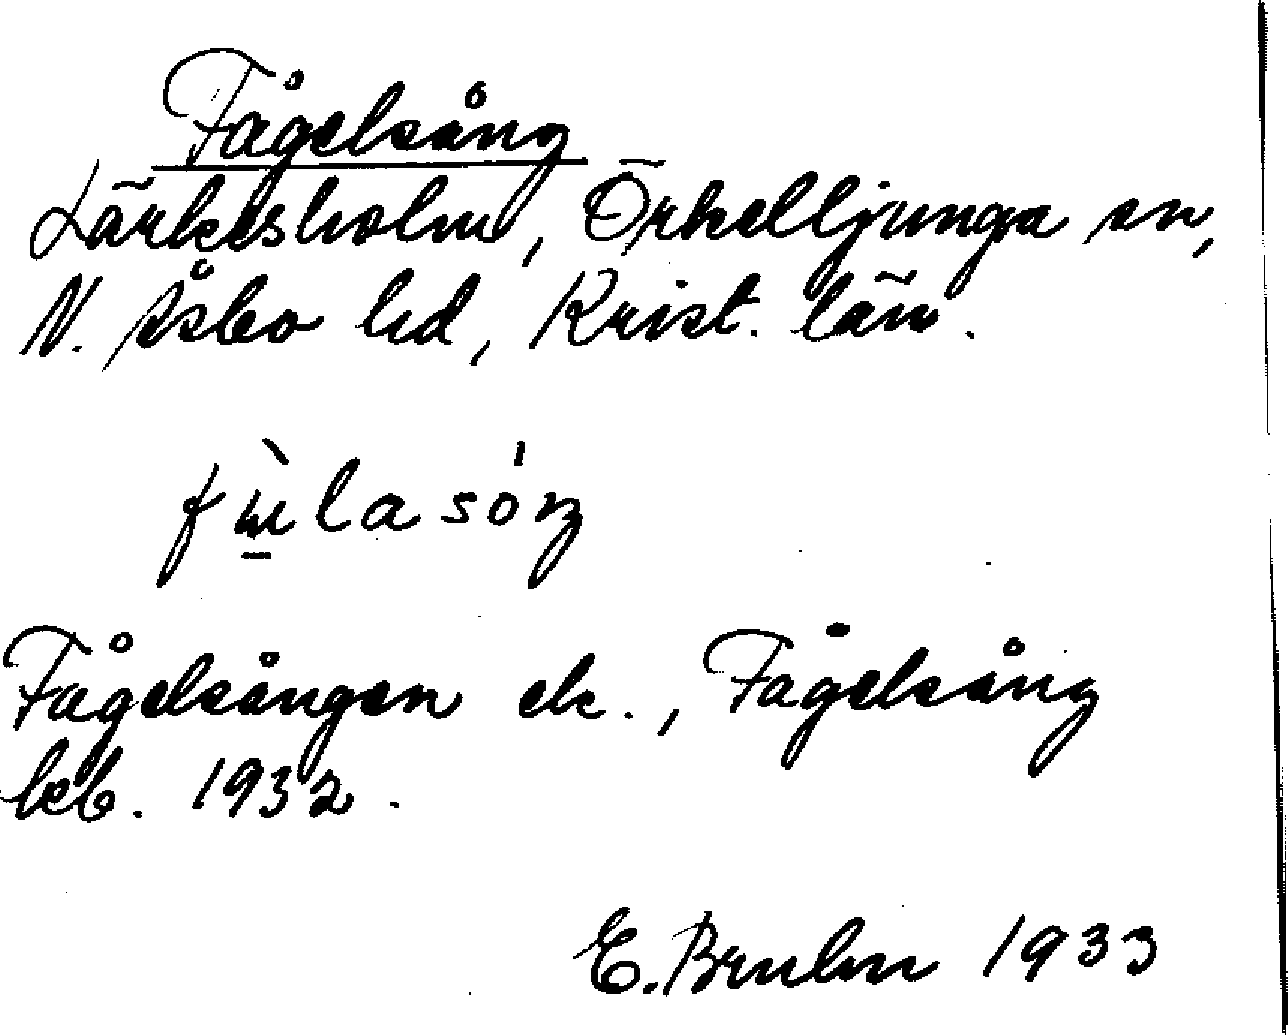 Fågelsång
Lärkesholm, Örkelljunga sn,
N. Åsbo hd, Krist. län.
fɯ̀lasóŋ
Fågelsången ek., Fågelsång
beb. 1932.
E. Bruhn 1933